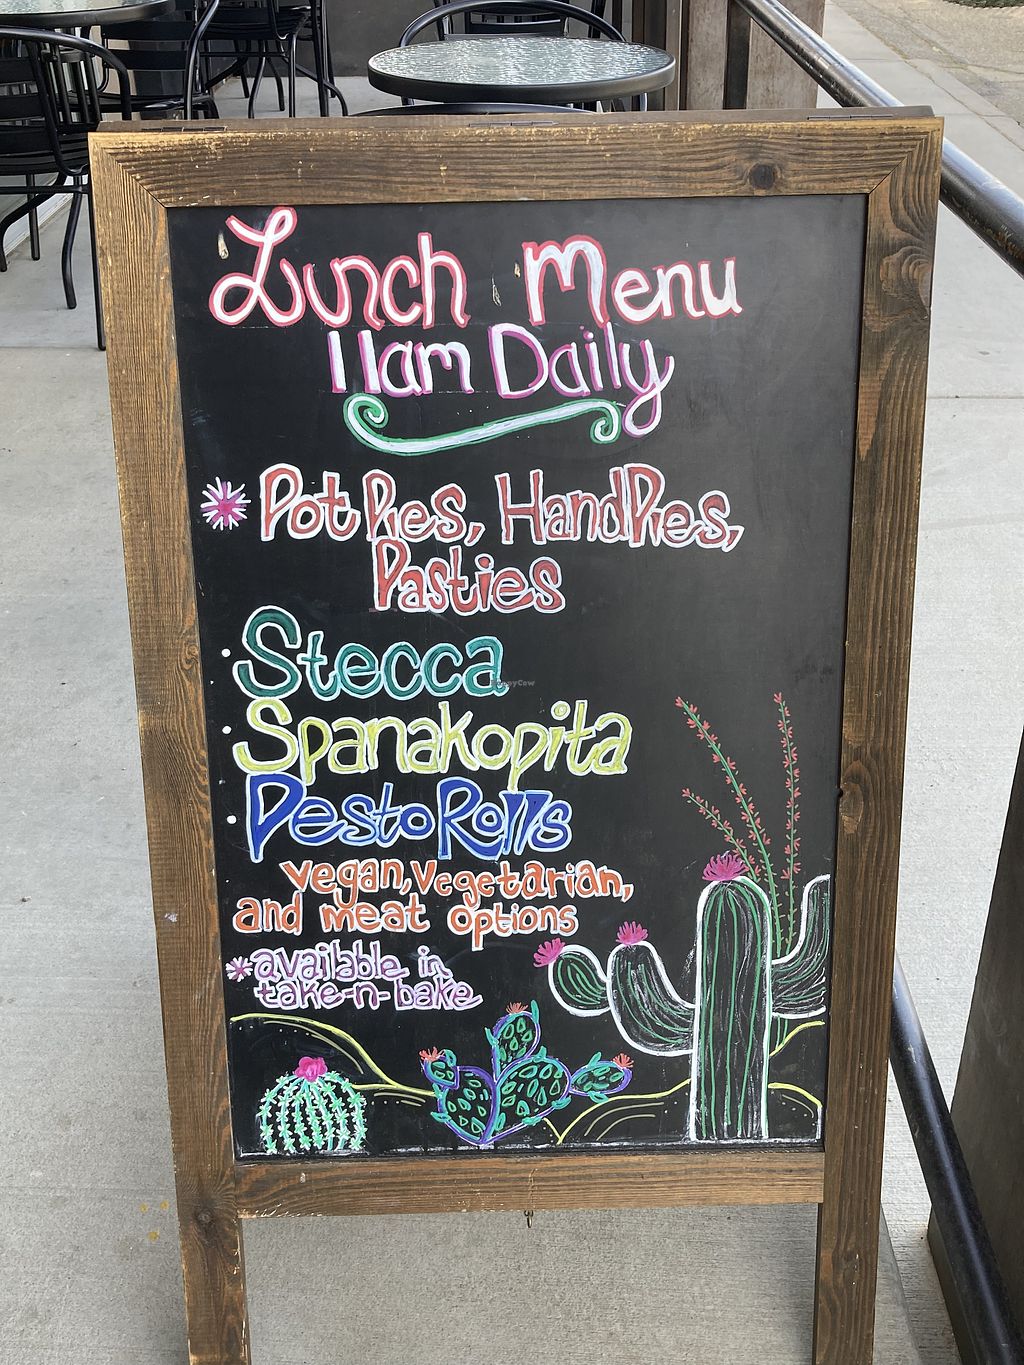 Lunch Menu
11am Daily
* Pot Pies, Hand Pies,
Pasties
• Stecca
• Spanakopita
• Pesto Rolls
vegan, vegetarian,
and meat options
* available in
take-n-bake
HappyCow